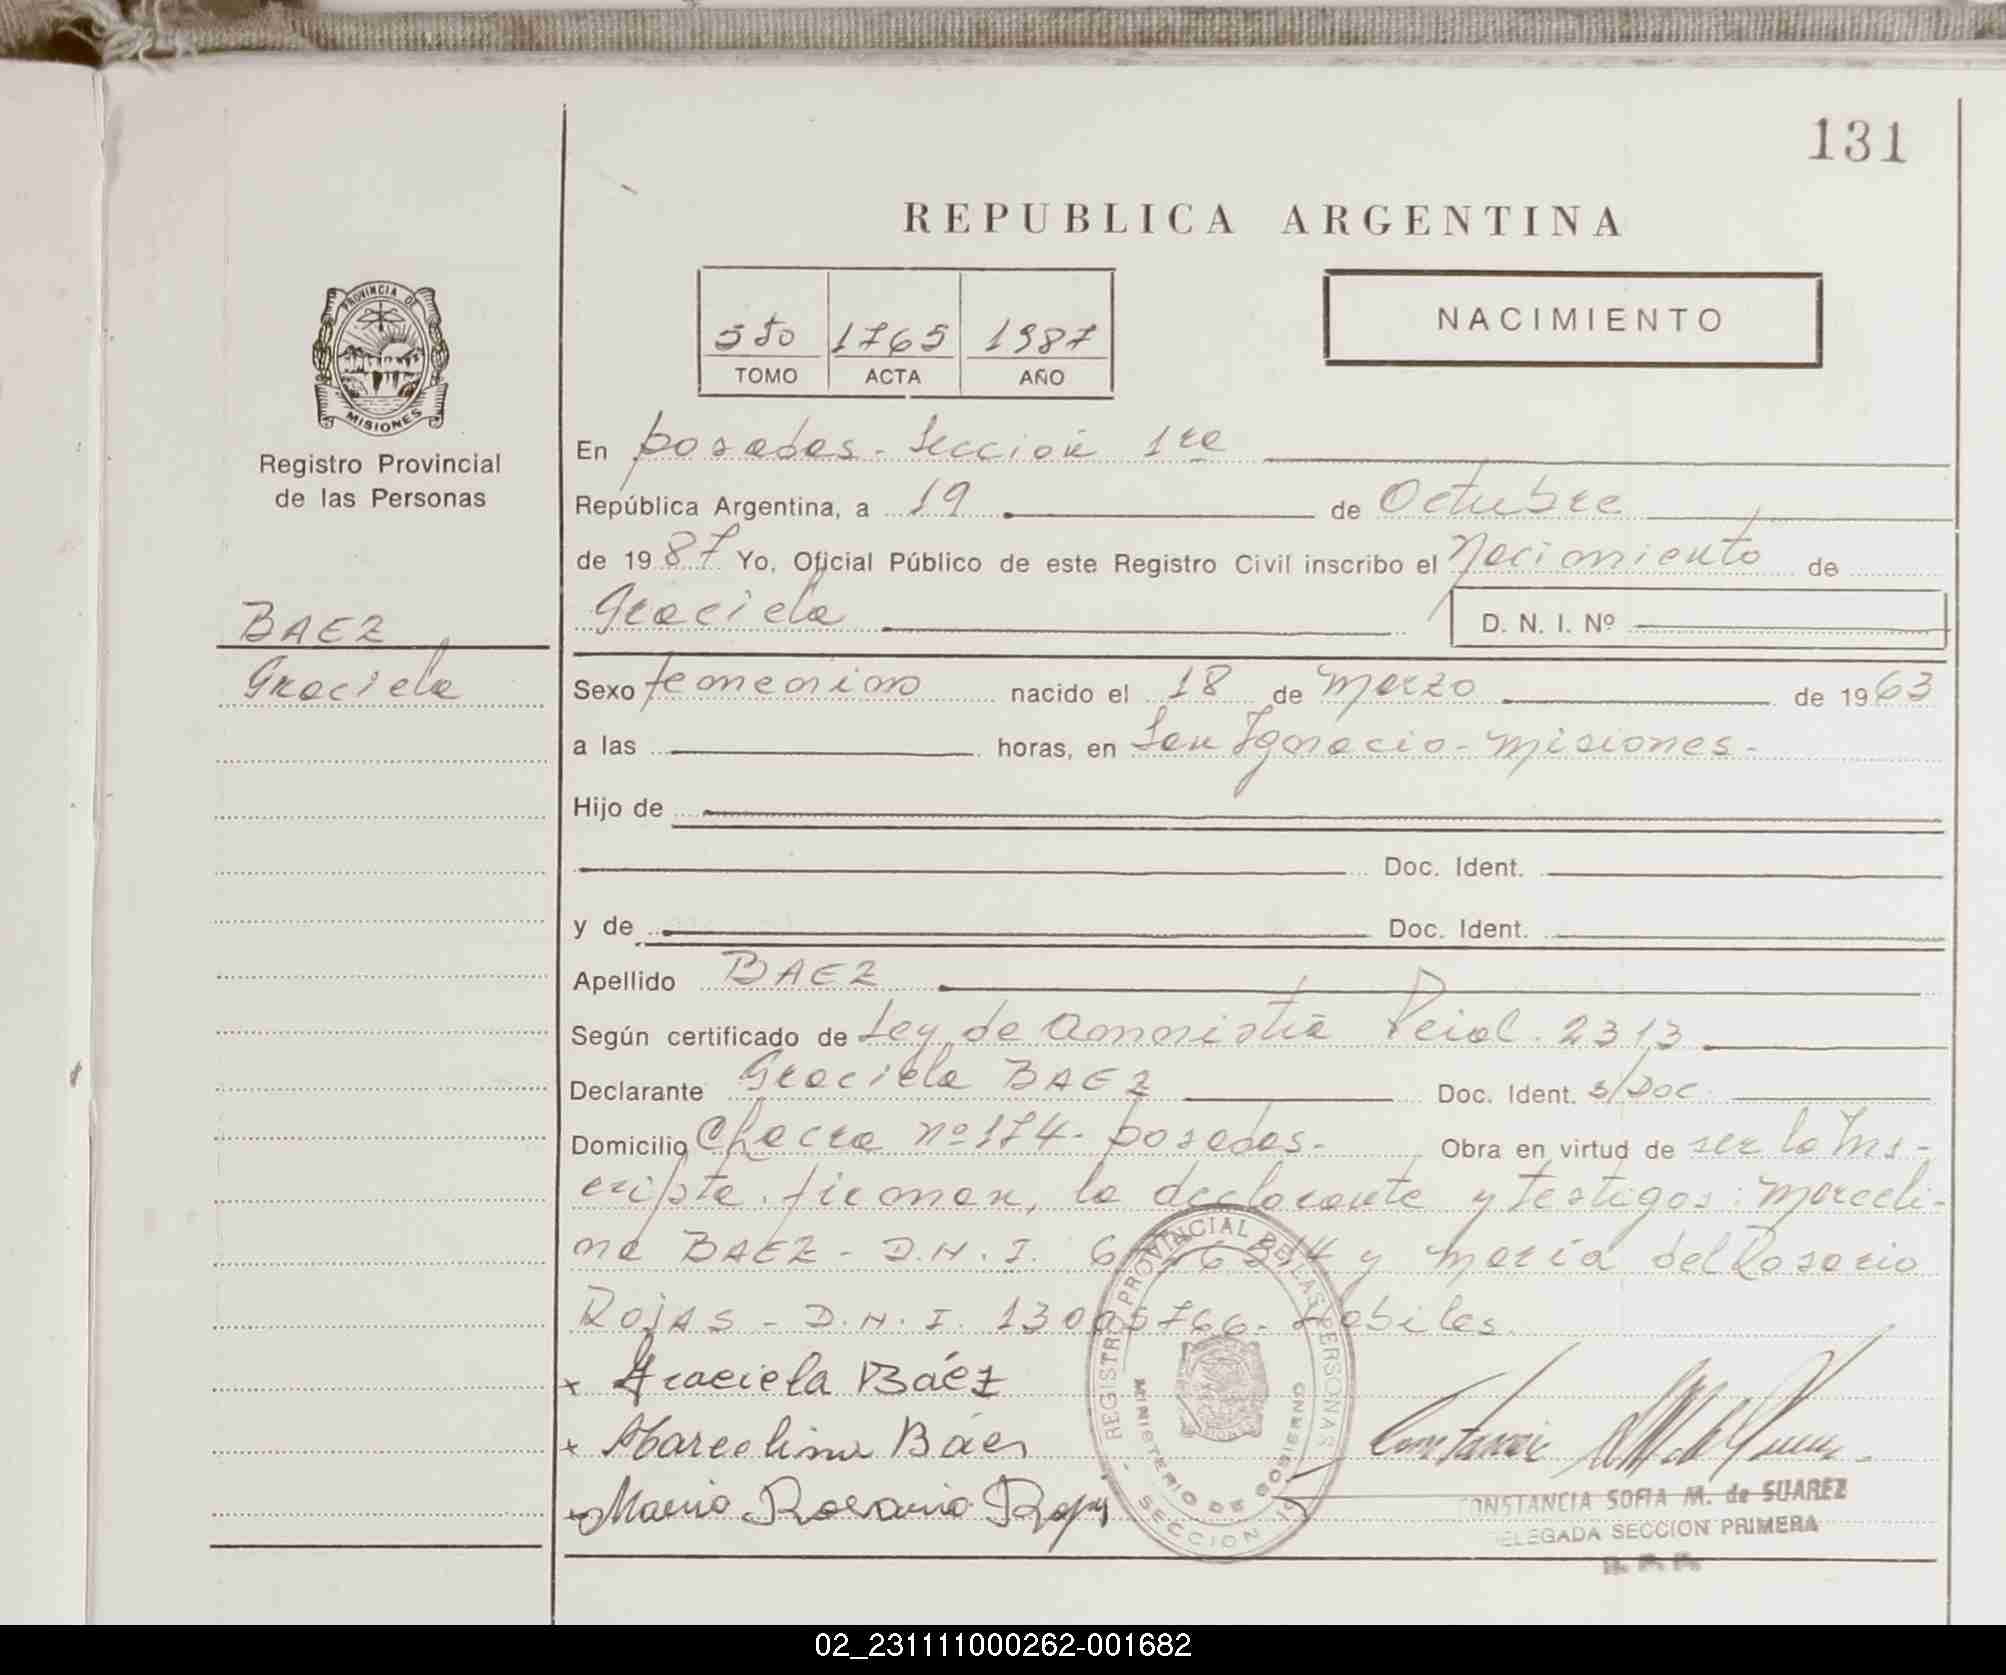 131
REPUBLICA ARGENTINA
PROVINCIA DE
MISIONES
Registro Provincial
de las Personas
550 1765 1987
TOMO ACTA AÑO
NACIMIENTO
En Posadas - Sección 1ra
República Argentina, a 19 de Octubre
de 1987 Yo, Oficial Público de este Registro Civil inscribo el Nacimiento de
Graciela D. N. I. Nº
BAEZ
Graciela
Sexo femenino nacido el 18 de Marzo de 1963
a las horas, en San Ignacio - Misiones -
Hijo de
Doc. Ident.
y de Doc. Ident.
Apellido BAEZ
Según certificado de Ley de Amnistia Pcial. 2313
Declarante Graciela BAEZ Doc. Ident. s/Doc.
Domicilio Chacra nº 174 - Posadas - Obra en virtud de ser la Ins-
cripta. firman, la declarante y testigos: Marceli-
na BAEZ - D.N.I. y María del Rosario
Rojas - D.N.I. 13005766 - Hábiles.
x Graciela Báez
x Marcelina Báes
x Maria Rosario Rojas
REGISTRO PROVINCIAL DE LAS PERSONAS
MINISTERIO DE GOBIERNO
SECCION 1ª
CONSTANCIA SOFIA M. de SUAREZ
DELEGADA SECCION PRIMERA
R. P. P.
02_231111000262-001682